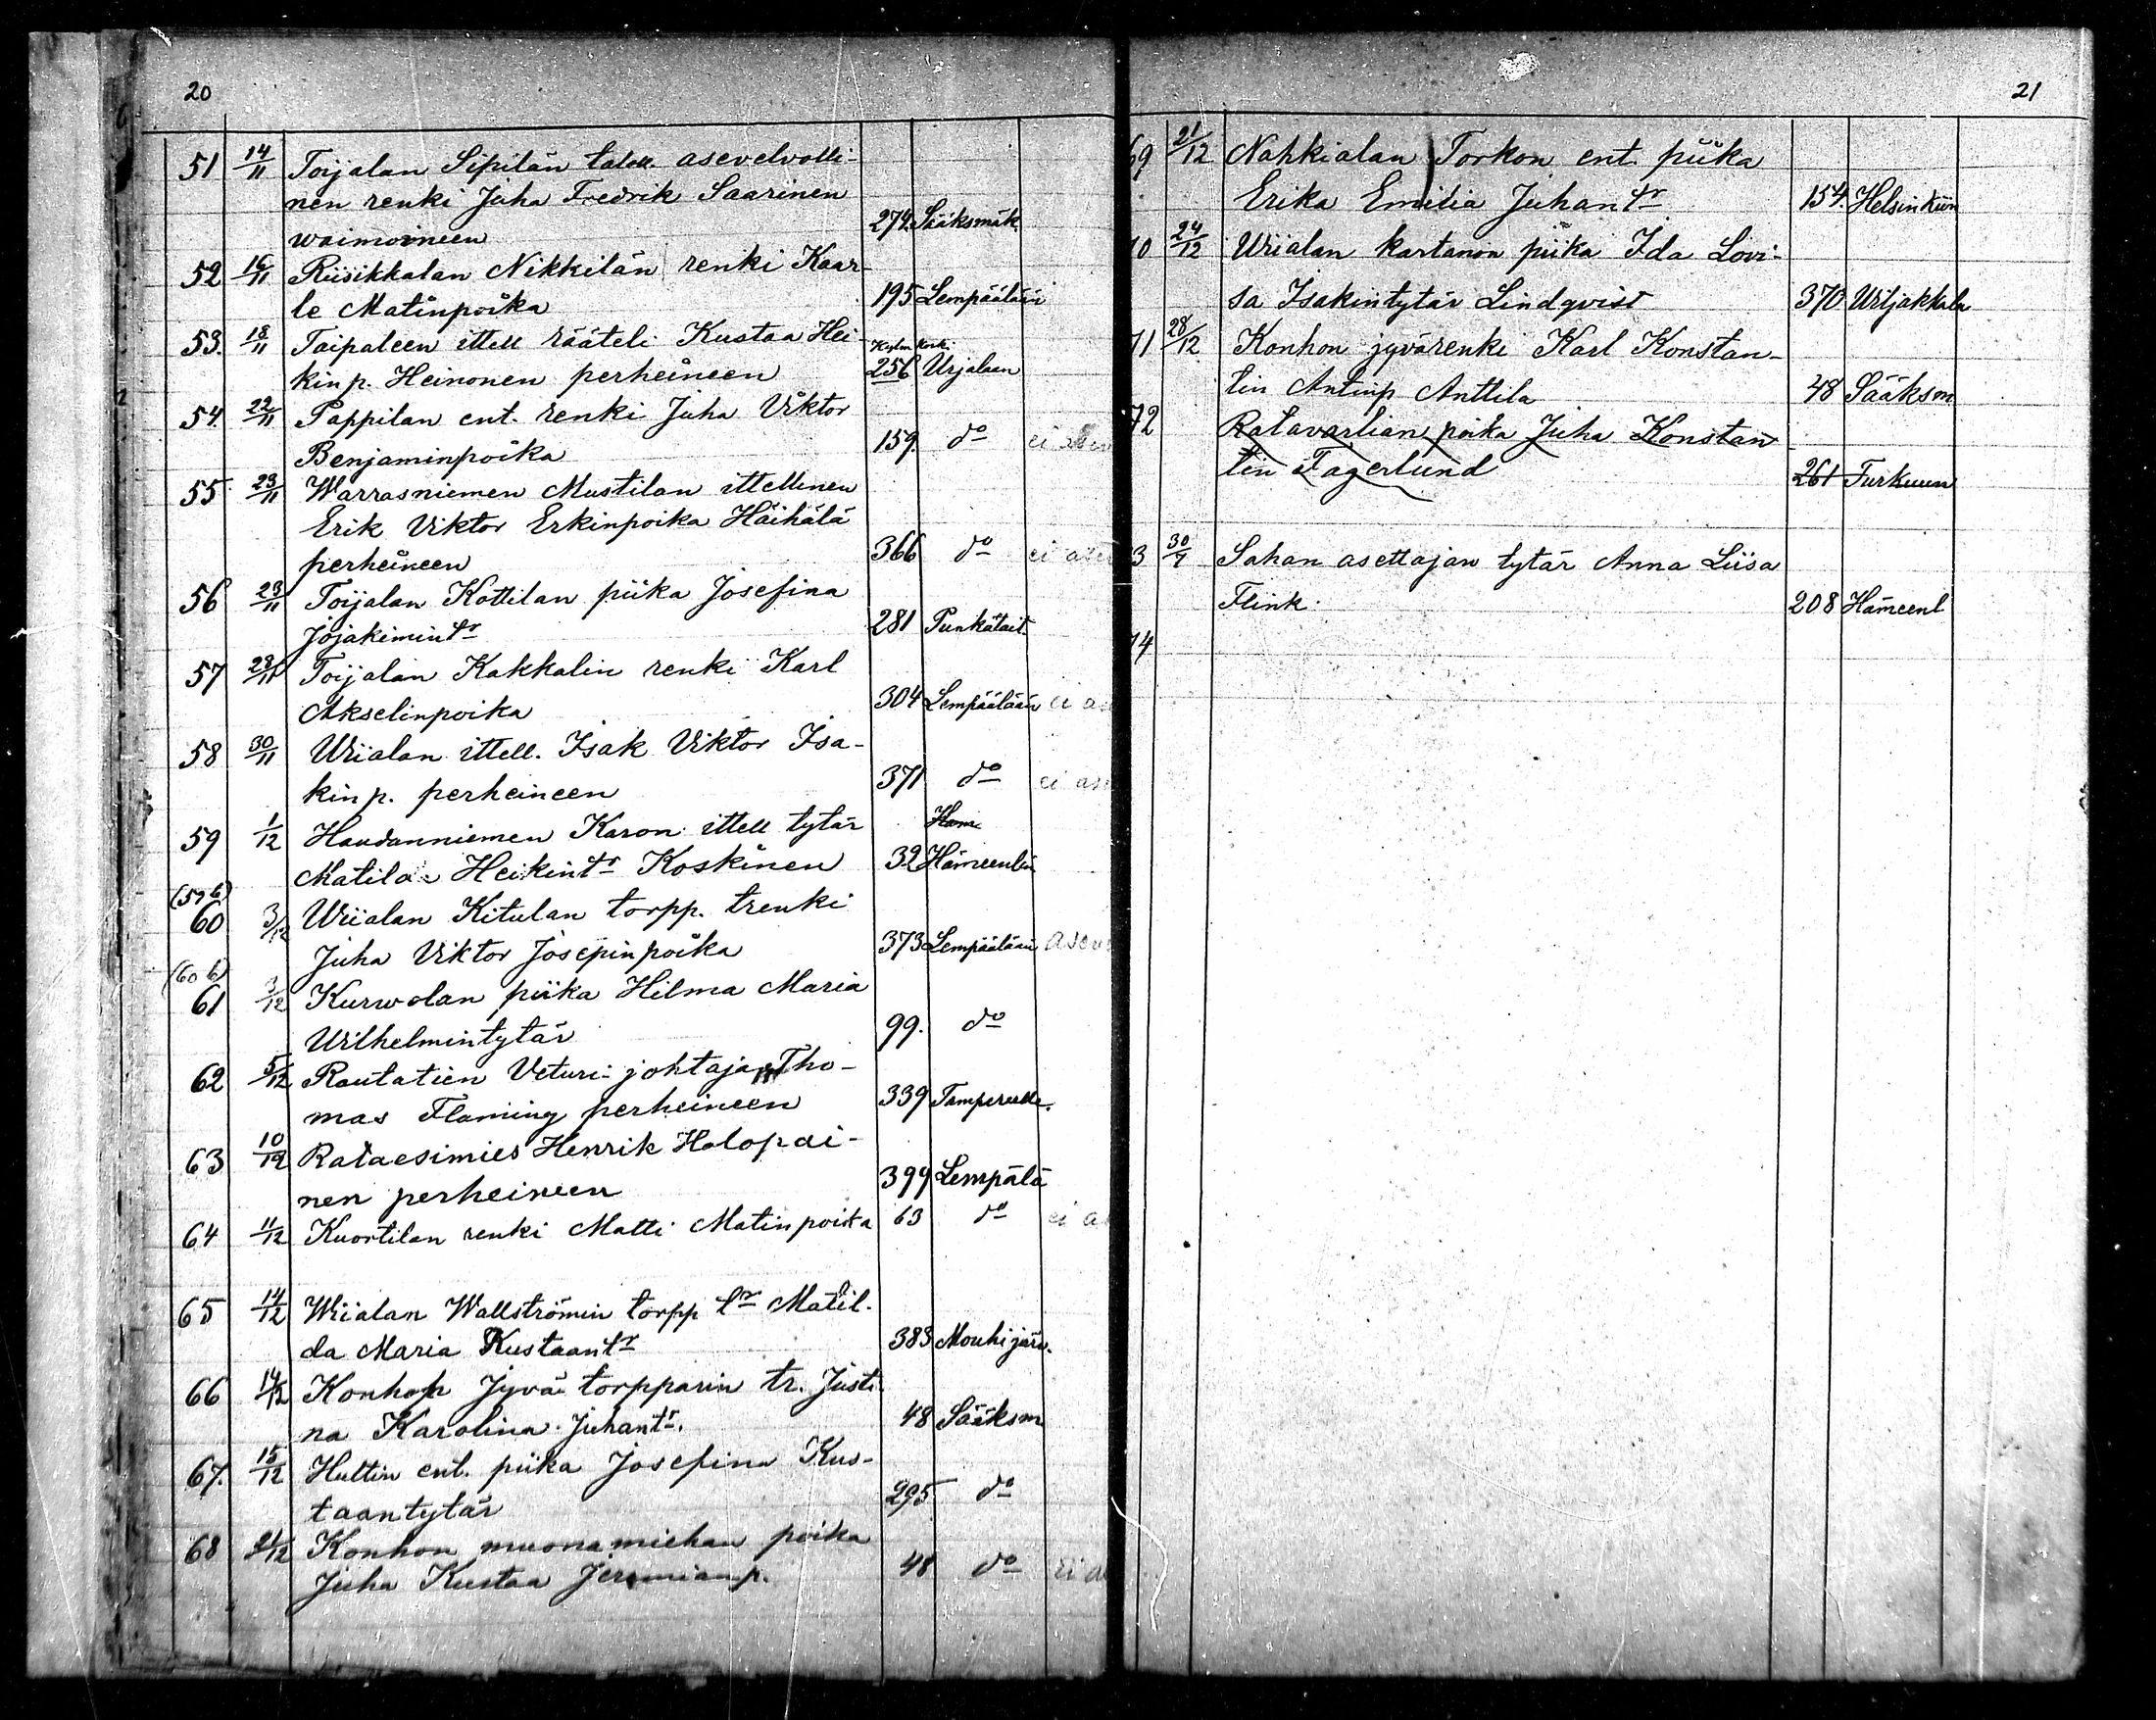 20
51 14/11 Toijalan Sipilän talon asevelvolli-
nen renki Juha Fredrik Saarinen
waimoineen 274. Sääksmäk.
52 16/11 Riisikkalan Nikkilän renki Kaar-
le Matinpoika 195 Lempäälään
53. 18/11 Taipaleen ittell rääteli Kustaa Hei-
kinp. Heinonen perheineen 256 Urjalaan
54. 22/11 Pappilan ent. renki Juha Viktor
Benjaminpoika 159. do ei
55 23/11 Warrasniemen Mustilan ittellinen
Erik Viktor Erkinpoika Häihälä
perheineen 366 do ei
56 23/11 Toijalan Kottilan piika Josefina
Jojakimintr 281 Punkalait.
57 28/11 Toijalan Kakkalin renki Karl
Akselinpoika 304 Lempäälään ei
58 30/11 Wiialan ittell. Isak Viktor Isa-
kinp. perheineen 371 do ei
59 1/12 Haudanniemen Karon ittell tytär Ham
Matila Heikintr Koskinen 32 Hämeenlin
(59 b)
60 3/12 Wiialan Kitulan torpp. trenki
Juha Viktor Josepinpoika 373 Lempäälään
(60 b)
61 3/12 Kurwolan piika Hilma Maria
Wilhelmintytär 99. do
62 5/12 Rautatien Veturi-johtaja Tho-
mas Flaming perheineen 339 Tampereelle.
63 10/12 Rataesimies Henrik Holopai-
nen perheineen 399 Lempälä
64 11/12 Kuortilan renki Matti Matinpoika 63 do ei
65 14/12 Wiialan Wallströmin torpp tr Matil-
da Maria Kustaantr 383 Mouhijärv.
66 14/12 Konhon Jyvä torpparin tr. Justi-
na Karolina Juhantr. 48 Sääksm
67. 15/12 Huttin ent. piika Josefina Kus-
taantytär 295 do
68 21/12 Konhon muonamiehan poika
Juha Kustaa Jeremianp. 48 do ei
21
69 21/12 Nahkialan Torkon ent. piika
Erika Emilia Juhantr 154. Helsinkiin
70 24/12 Wiialan kartanon piika Ida Lovi-
sa Isakintytär Lindqvist 370 Viljakkala
71 28/12 Konhon jyvärenki Karl Konstan-
tin Antinp Anttila 48 Sääksm
72 Ratavartian poika Juha Konstan
tin Fagerlund 261 Turkuun
3 30/7 Sahan asettajan tytär Anna Liisa
Flink. 208 Hämeenl
74